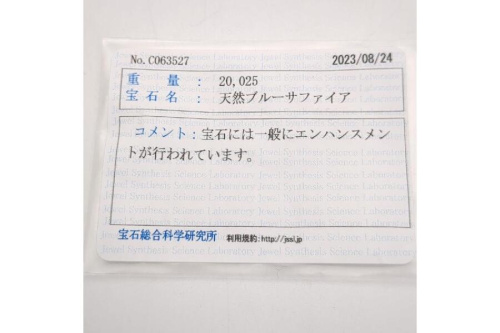 No.C063527
2023/08/24
重量 : 20,025
宝石名 : 天然ブルーサファイア
コメント：宝石には一般にエンハンスメン
トが行われています。
宝石総合科学研究所 利用規約:http://jssl.jp